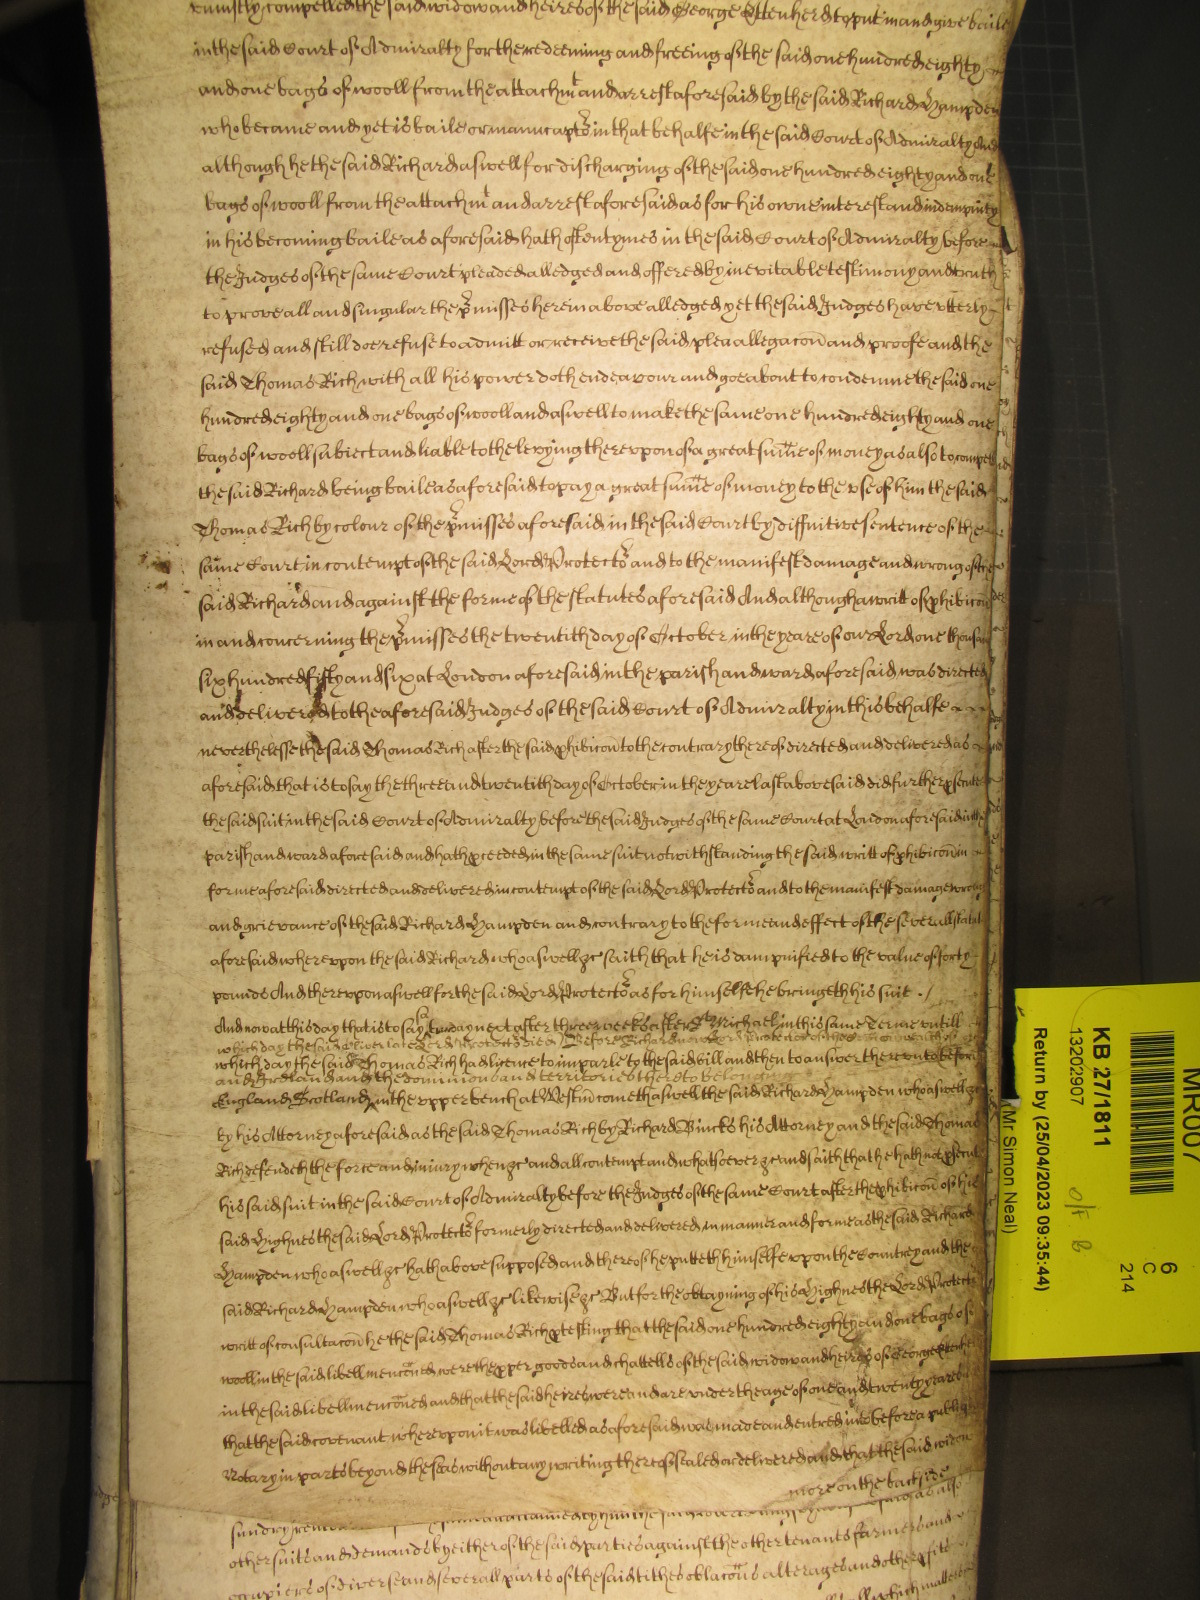 compelled the said widow and heires of the said George Ottenherd to put in and give baile
in the said Court of Admiralty for the redeeming and freeing of the said one hundred eighty
and one bags of wooll from the attachmt and arrest aforesaid by the said Richard Hampden
who became and yet is baile or manucaptor in that behalfe in the said Court of Admiralty And
although he the said Richard aswell for discharging of the said one hundred eighty and one
bags of wooll from the attachmt and arrest aforesaid as for his owne interest and indempnity
in his becoming baile as aforesaid hath oftentymes in the said Court of Admiralty before
the Judges of the same Court pleaded alledged and offered by inevitable testimony and truth
to prove all and singular the pmisses herein above alledged yet the said Judges have utterly
refused and still doe refuse to admitt or receive the said plea allegacon and proofe and the
said Thomas Rich with all his power doth endeavour and goe about to condemne the said one
hundred eighty and one bags of wooll and aswell to make the same one hundred eighty and one
bags of wooll subiect and liable to the levying thereupon of a great summe of money as also to compell
the said Richard being baile as aforesaid to pay a great summe of money to the use of him the said
Thomas Rich by colour of the pmisses aforesaid in the said Court by diffinitive sentence of the
same Court in contempt of the said Lord Protector and to the manifest damage and wrong of the
said Richard and against the forme of the statutes aforesaid And although a writt of phibicon
in and concerning the pmisses the twentith day of October in the yeare of our Lord one thousand
six hundred fifty and six at London aforesaid in the parish and ward aforesaid was directed
and delivered to the aforesaid Judges of the said Court of Admiralty in this behalfe
neverthelesse the said Thomas Rich after the said phibicon to the contrary thereof directed and delivered as
aforesaid that is to say the three and twentith day of October in the yeare last abovesaid did further psecute
the said suit in the said Court of Admiralty before the said Judges of the same Court at London aforesaid in the
parish and ward aforesaid and hath pceeded in the same suit notwithstanding the said writt of phibicon in
forme aforesaid directed and delivered in contempt of the said Lord Protector and to the manifest damage wrong
and grievance of the said Richard Hampden and contrary to the forme and effect of the severall statut
aforesaid whereupon the said Richard who aswell &c saith that he is dampnified to the value of forty
pounds And thereupon aswell for the said Lord Protector as for himselfe he bringeth his suit
And now at this day that is to say next after three weeks after St Michael in this same Terme untill
which day the said
which day the said Thomas Rich had licence to imparle to the said bill and then to answer thereunto before
and Ireland and the dominions and territories thereto belonging
England Scotland in the upper bench at Westm cometh aswell the said Richard Hampden who aswell &c
by his Attorney aforesaid as the said Thomas Rich by Richard Bincks his Attorney and the said Thomas
Rich defendeth the force and iniury when &c and all contempt and whatsoever &c and saith that he hath not psecut
his said suit in the said Court of Admiralty before the Judges of the same Court after the phibicon of his
said Highnes the said Lord Protector formerly directed and delivered in manner and forme as the said Richard
Hampden who aswell &c hath above supposed and thereof he putteth himselfe upon the Countrey and the
said Richard Hampden who aswell &c likewise &c But for the obtayning of his Highnes the Lord Protector
writt of consultacon he the said Thomas Rich ptesting that the said one hundred eighty and one bags of
wooll in the said libell menconed were the pper goods and chattells of the said widow and heires of George
in the said libell menconed and that the said heires were and are under the age of one and twenty yeares
that the said covenant whereupon it was libelled as aforesaid was made and entred into before a publiq
Notary in parts beyond the seas without any writing thereof sealed or delivered and that the said
more on the backside
sundry
other suits and demands by either of the said parties against the other tenants farmers and
occupiers of diverse and severall parts of the said tithes oblacons alterages and other pfits
which matters
MR007
KB 27/1811
13202907
Return by (25/04/2023 09:35:44)
(Mr Simon Neal)
6
C
214